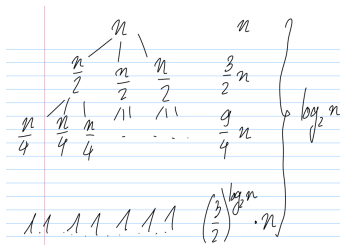 n n
n/2 n/2 n/2 3/2 n
n/4 n/4 n/4 . . . . 9/4 n log₂n
1 1 . 1 1 . 1 . 1 . 1 (3/2)^log₂n · n